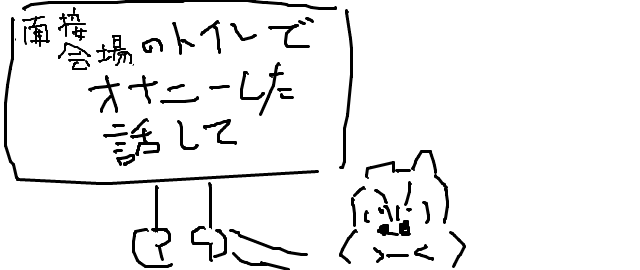 面接
会場のトイレで
オナニーした
話して